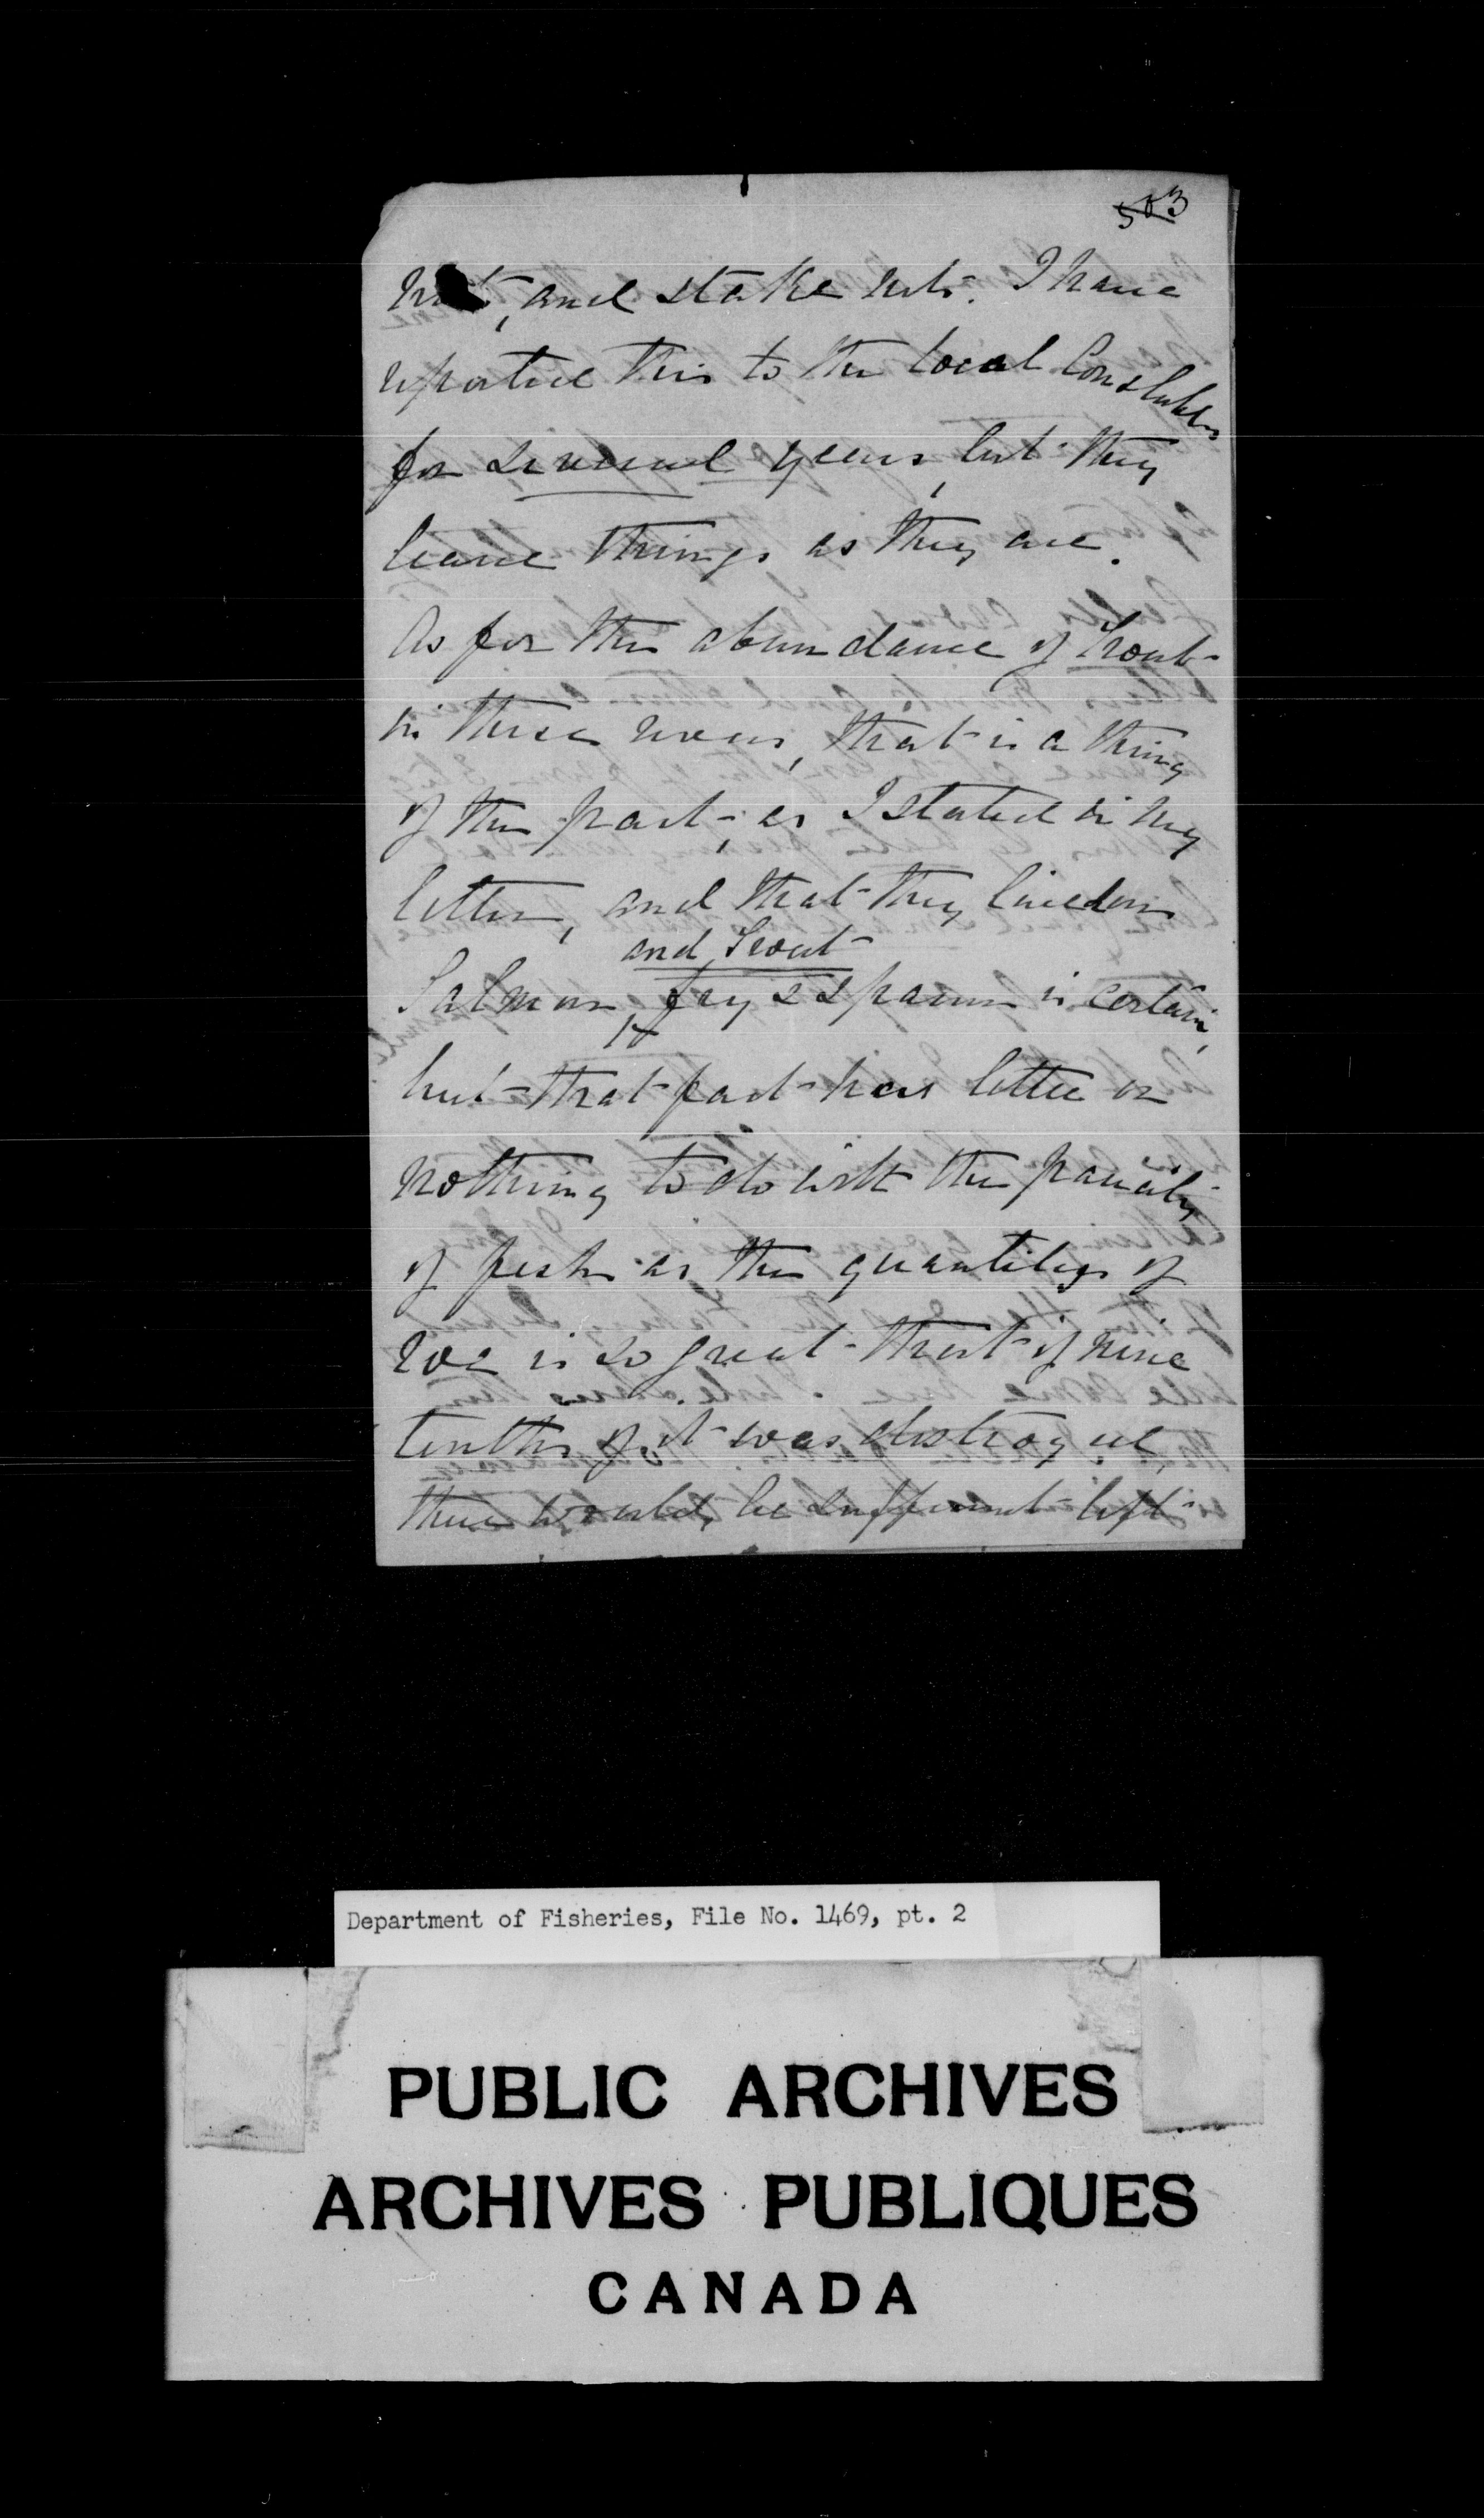 503
and stake nets. I have
reported this to the local Constables
for several years, but they
leave things as they are.
As for the abundance of Trout
in these rivers, that is a thing
of the past, as I stated in my
letter, and that they live on
and Trout
Salmon fry & spawn is certain,
but that fact has little or
nothing to do with the paucity
of fish as the quantity of
roe is so great that if nine
tenths of it was destroyed,
there would be sufficient left
Department of Fisheries, File No. 1469, pt. 2
PUBLIC ARCHIVES
ARCHIVES PUBLIQUES
CANADA